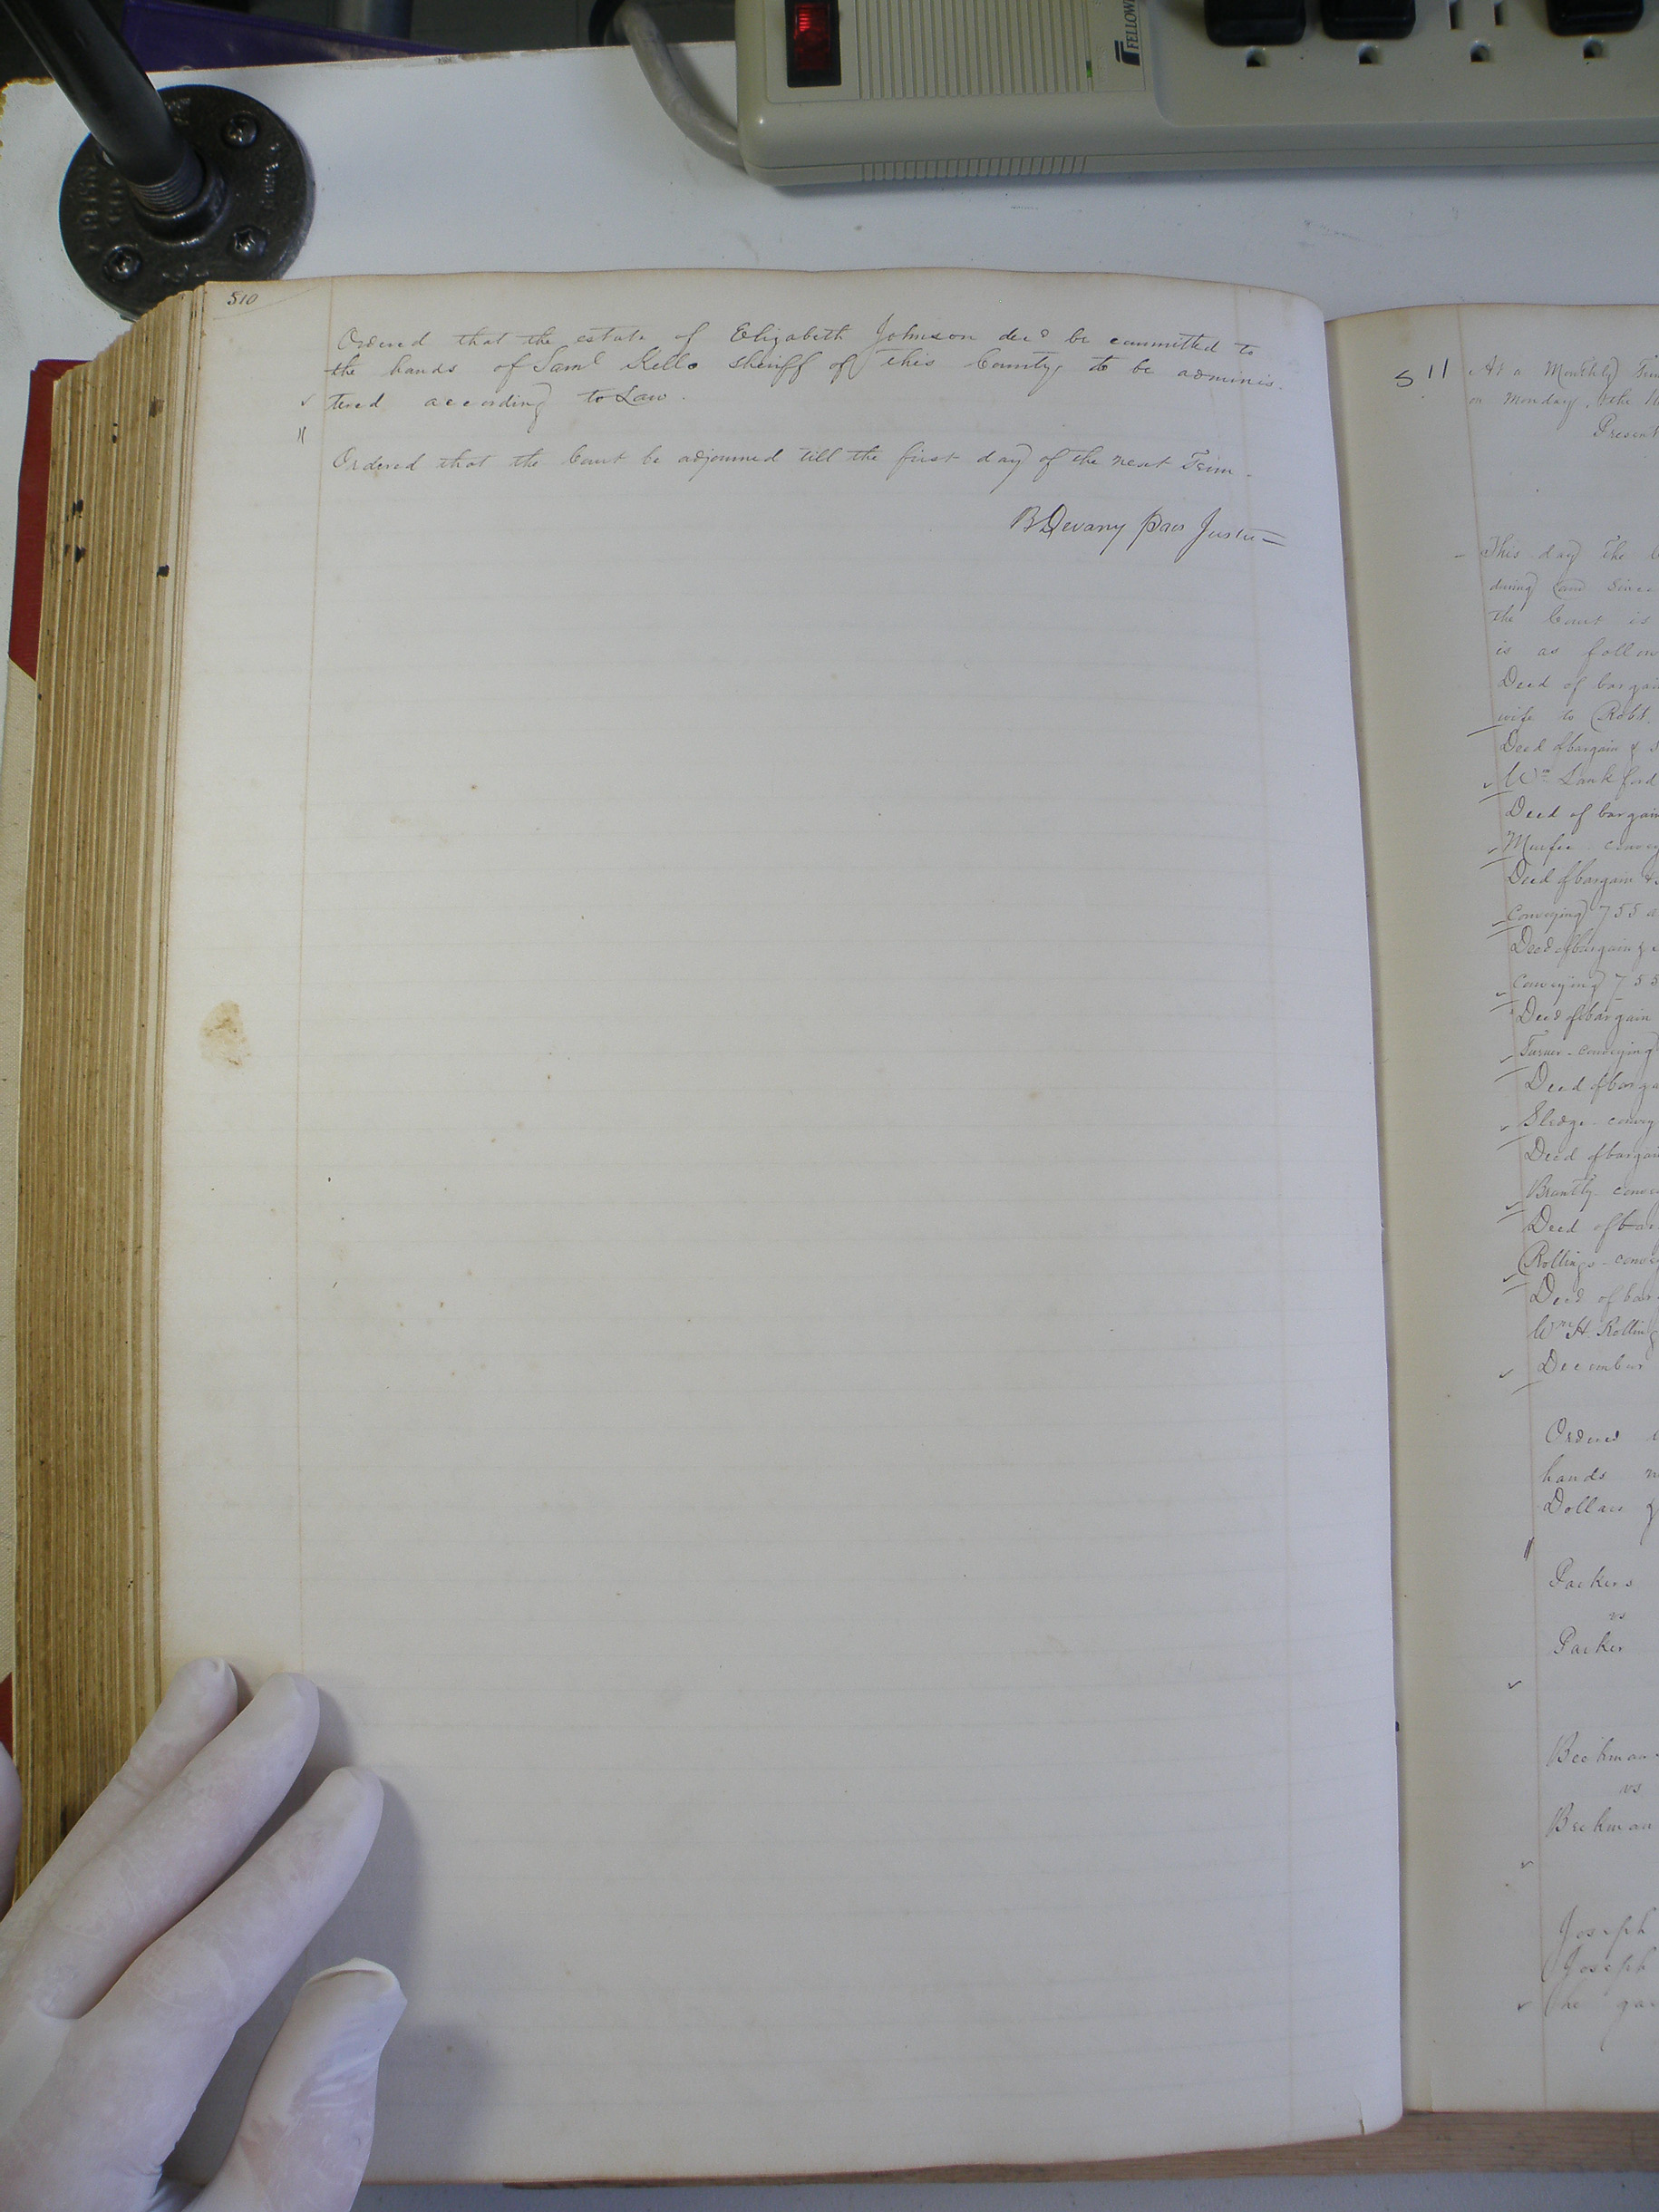 FELLOW
510
Ordered that the estate of Elizabeth Johnson decd be committed to
the hands of Saml Kello sheriff of this County, to be adminis-
tered according to Law.
Ordered that the Court be adjourned till the first day of the next Term.
B Devany
511
At a Monthly
on Monday, the
Present
This day the
during and since
the Court is
is as follow
Deed of bargain
wife to Robt.
Deed of bargain &
Wm Lankford
Deed of bargain
Murfee convey
Deed of bargain &
Conveying 755 a
Deed of bargain &
Conveying 755
Deed of bargain
Turner - conveying
Deed of barga
Sledge - convey
Deed of bargai
Brantly - conve
Deed of bar
Rollings - convey
Deed of bar
Wm H. Rolling
December
Ordered
hands
Dollars &
Parkers
vs
Parker
vs
Joseph
Joseph
he